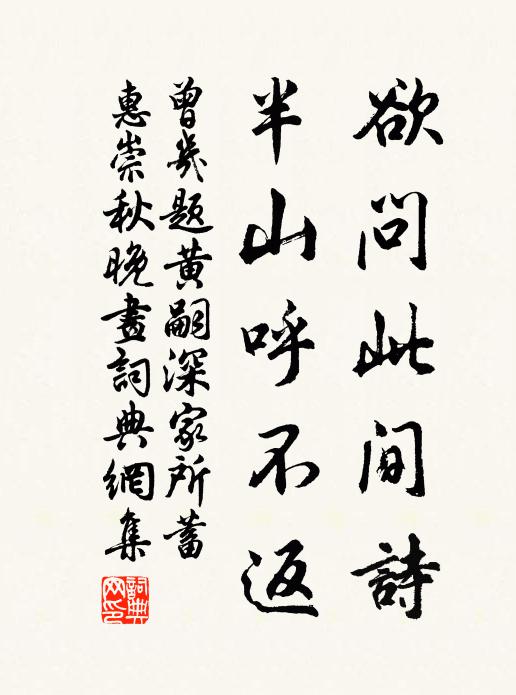 欲問此间詩
半山呼不返
曾幾題黄嗣深家所蓄
惠崇秋晚畫詞典網集
詞典